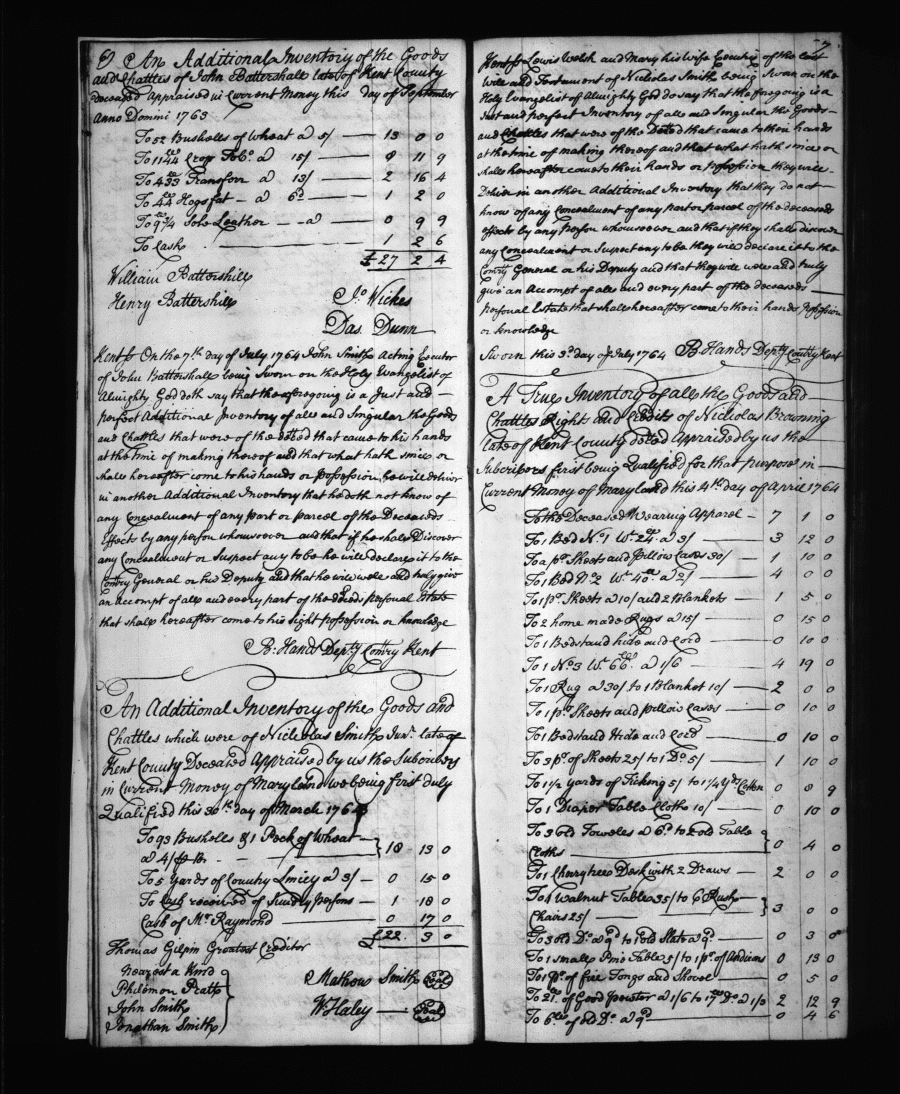 6 An Additional Inventory of the Goods
and Chattles of John Battershall late of Kent County
deceased Appraised in Current Money this day of September
Anno Domini 1763
To 52 Bushells of Wheat a 5/ 13 0 0
To 1144 Crop Tobo. a 15/ 8 11 9
To 433 Transferr a 13/ 2 16 4
To 44 Hogsfat a 6d 1 2 0
To 9¾ Sole Leather a 0 9 9
To Cash 1 2 6
£27 2 4
William Battershill
Henry Battershill
Jo. Wickes
Das. Dunn
Kent ss On the 7th day of July 1764 John Smith Acting Executor
of John Battershall being Sworn on the Holy Evangelist of
Almighty God doth say that the aforegoing is a Just and
perfect Additional Inventory of all and Singular the Goods
and Chattles that were of the deced that came to his hands
at the time of making thereof and that what hath since or
shall hereafter come to his hands or possession he will deliver
in another Additional Inventory that he doth not know of
any Concealment of any part or parcel of the Deceaseds
Effects by any person whomsoever and that if he shall Discover
any Concealment or Suspect any to be he will declare it to the
Comry General or his Deputy and that he will well and truly give
an accompt of all and every part of the deceds personal Estate
that shall hereafter come to his sight possession or knowledge
R. Hands Depty Comry Kent
An Additional Inventory of the Goods and
Chattles which were of Nicholas Smith Junr. late of
Kent County Deceased Appraised by us the Subscribers
in Current Money of Maryland we being first duly
Qualified this 30th day of March 1764
To 93 Bushells & 1 Peck of Wheat
a 4/ 18 13 0
To 5 Yards of Country Lincy a 3/ 0 15 0
To Cash received of Sundry persons 1 18 0
Cash of Mr. Raymond 0 17 0
£22. 3 0
Thomas Gilpin Greatest Creditor
Nearest a Kind
Philemon Pratt
John Smith
Jonathan Smith
Mathew Smith Seal
W. Haley Seal
7
Kent ss Lewis Welsh and Mary his Wife Executrix of the last
Will and Testament of Nicholas Smith being Sworn on the
Holy Evangelist of Almighty God do say that the foregoing is a
Just and perfect Inventory of all and Singular the Goods
and Chattles that were of the Deced that came to their hands
at the time of making thereof and that what hath since or
shall hereafter come to their hands or possession they will
Deliver in another Additional Inventory that they do not
know of any Concealment of any part or parcel of the deceaseds
effects by any person whomsoever and that if they shall discover
any Concealment or Suspect any to be they will declare it to the
Comry General or his Deputy and that they will well and truly
give an Accompt of all and every part of the deceaseds
personal Estate that shall hereafter come to their hands possession
or knowledge
Sworn this 3d. day of July 1764 R. Hands Depty Comry Kent
A True Inventory of all the Goods and
Chattles Rights and Credits of Nicholas Browning
late of Kent County deced Appraised by us the
Subscribers first being Qualified for that purpose in
Current Money of Maryland this 4th day of April 1764
To the Deceased Wearing Apparel 7 1 0
To 1 Bed No. 1 Wt. 24 a 3/ 3 12 0
To a pr. Sheets and Pillow Cases 30/ 1 10 0
To 1 Bed No. 2 Wt. 40 a 2/ 4 0 0
To 1 pr. Sheets a 10/ and 2 Blankets 1 5 0
To 2 home made Rugs a 15/ 0 15 0
To 1 Bedstead hide and Cord 0 10 0
To 1 No 3 Wt. 66 a 1/6 4 19 0
To 1 Rug a 30/ to 1 Blanket 10/ 2 0 0
To 1 pr. Sheets and pillow Cases 0 10 0
To 1 Bedstead Hide and Cord 0 10 0
To 3 pr. of Sheets 25/ to 1 Do. 5/ 1 10 0
To 1½ Yards of Ticking 5/ to 1¼ Yds Cotton 0 8 9
To 1 Diaper Table Cloth 10/ 0 10 0
To 3 old Towells a 6d. to 2 old Table
Cloths 0 4 0
To 1 Cherrytree Desk with 2 Draws 2 0 0
To 1 Walnut Table 35/ to 6 Rush
Chairs 25/ 3 0 0
To 3 old Do. a 9d to 1 old Slate a 9d. 0 3 0
To 1 small Pine Table 5/ to 1 pr. of Andirons 0 13 0
To 1 pr. of fire Tongs and Shovel 0 5 0
To 21 of Good Pewter a 1/6 to 17 Do a 1/3 2 12 9
To 6 of old Do. a 9d 0 4 6